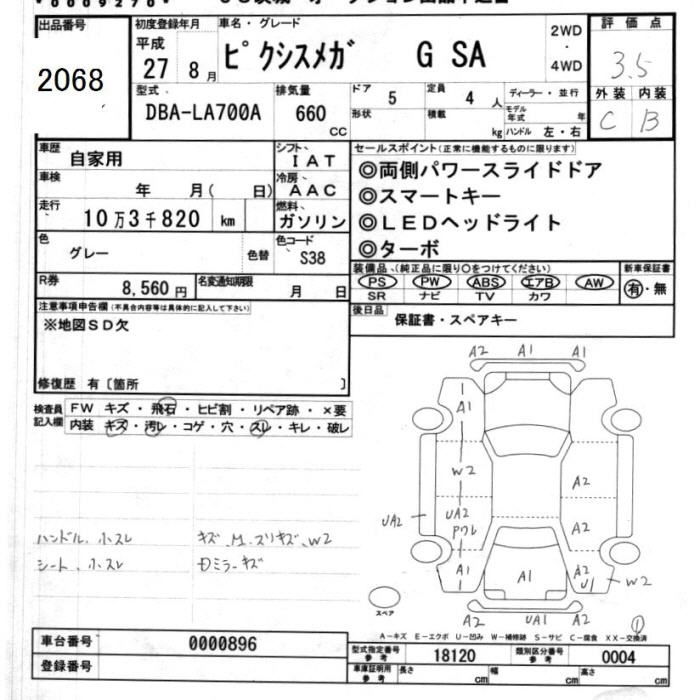 出品番号
2068
初度登録年月
平成
27 8月
車名・グレード
ピクシスメガ G SA
2WD
・
4WD
評価点
3.5
外装 内装
C B
型式
DBA-LA700A
排気量
660
CC
ドア
5
定員
4 人
形状
積載
kg
ディーラー・並行
モデル年式 年
ハンドル 左・右
車歴
自家用
シフト
IAT
車検
年 月( 日)
冷房
AAC
走行
10万3千820 km
燃料
ガソリン
色
グレー
色替
色コード
S38
R券
8,560円
名変通知期限
月 日
セールスポイント(正常に機能するものに限ります)
◎両側パワースライドドア
◎スマートキー
◎LEDヘッドライト
◎ターボ
装備品、(純正品に限り○をつけてください)
PS PW ABS エアB AW
SR ナビ TV カワ
新車保証書
有・無
後日品
保証書・スペアキー
注意事項申告欄(不具合内容等は具体的に記入して下さい)
※地図SD欠
修復歴 有〔箇所 〕
検査員記入欄
FW キズ・飛石・ヒビ割・リペア跡・×要
内装 キズ・汚レ・コゲ・穴・スレ・キレ・破レ
ハンドル、小スレ
シート、小スレ
キズ、M、スリキズ、W2
Dミラーキズ
A2 A1 A1
A1
W2
UA2
UA2
A2
A2
A1
A1
A2
U1
W2
A2 UA1 A2
スペア
①
A-キズ E-エクボ U-凹み W-補修跡 S-サビ C-腐食 XX-交換済
車台番号
0000896
登録番号
型式指定番号
参考
18120
類別区分番号
参考
0004
車庫証明用
参考
長さ cm
幅 cm
高さ cm